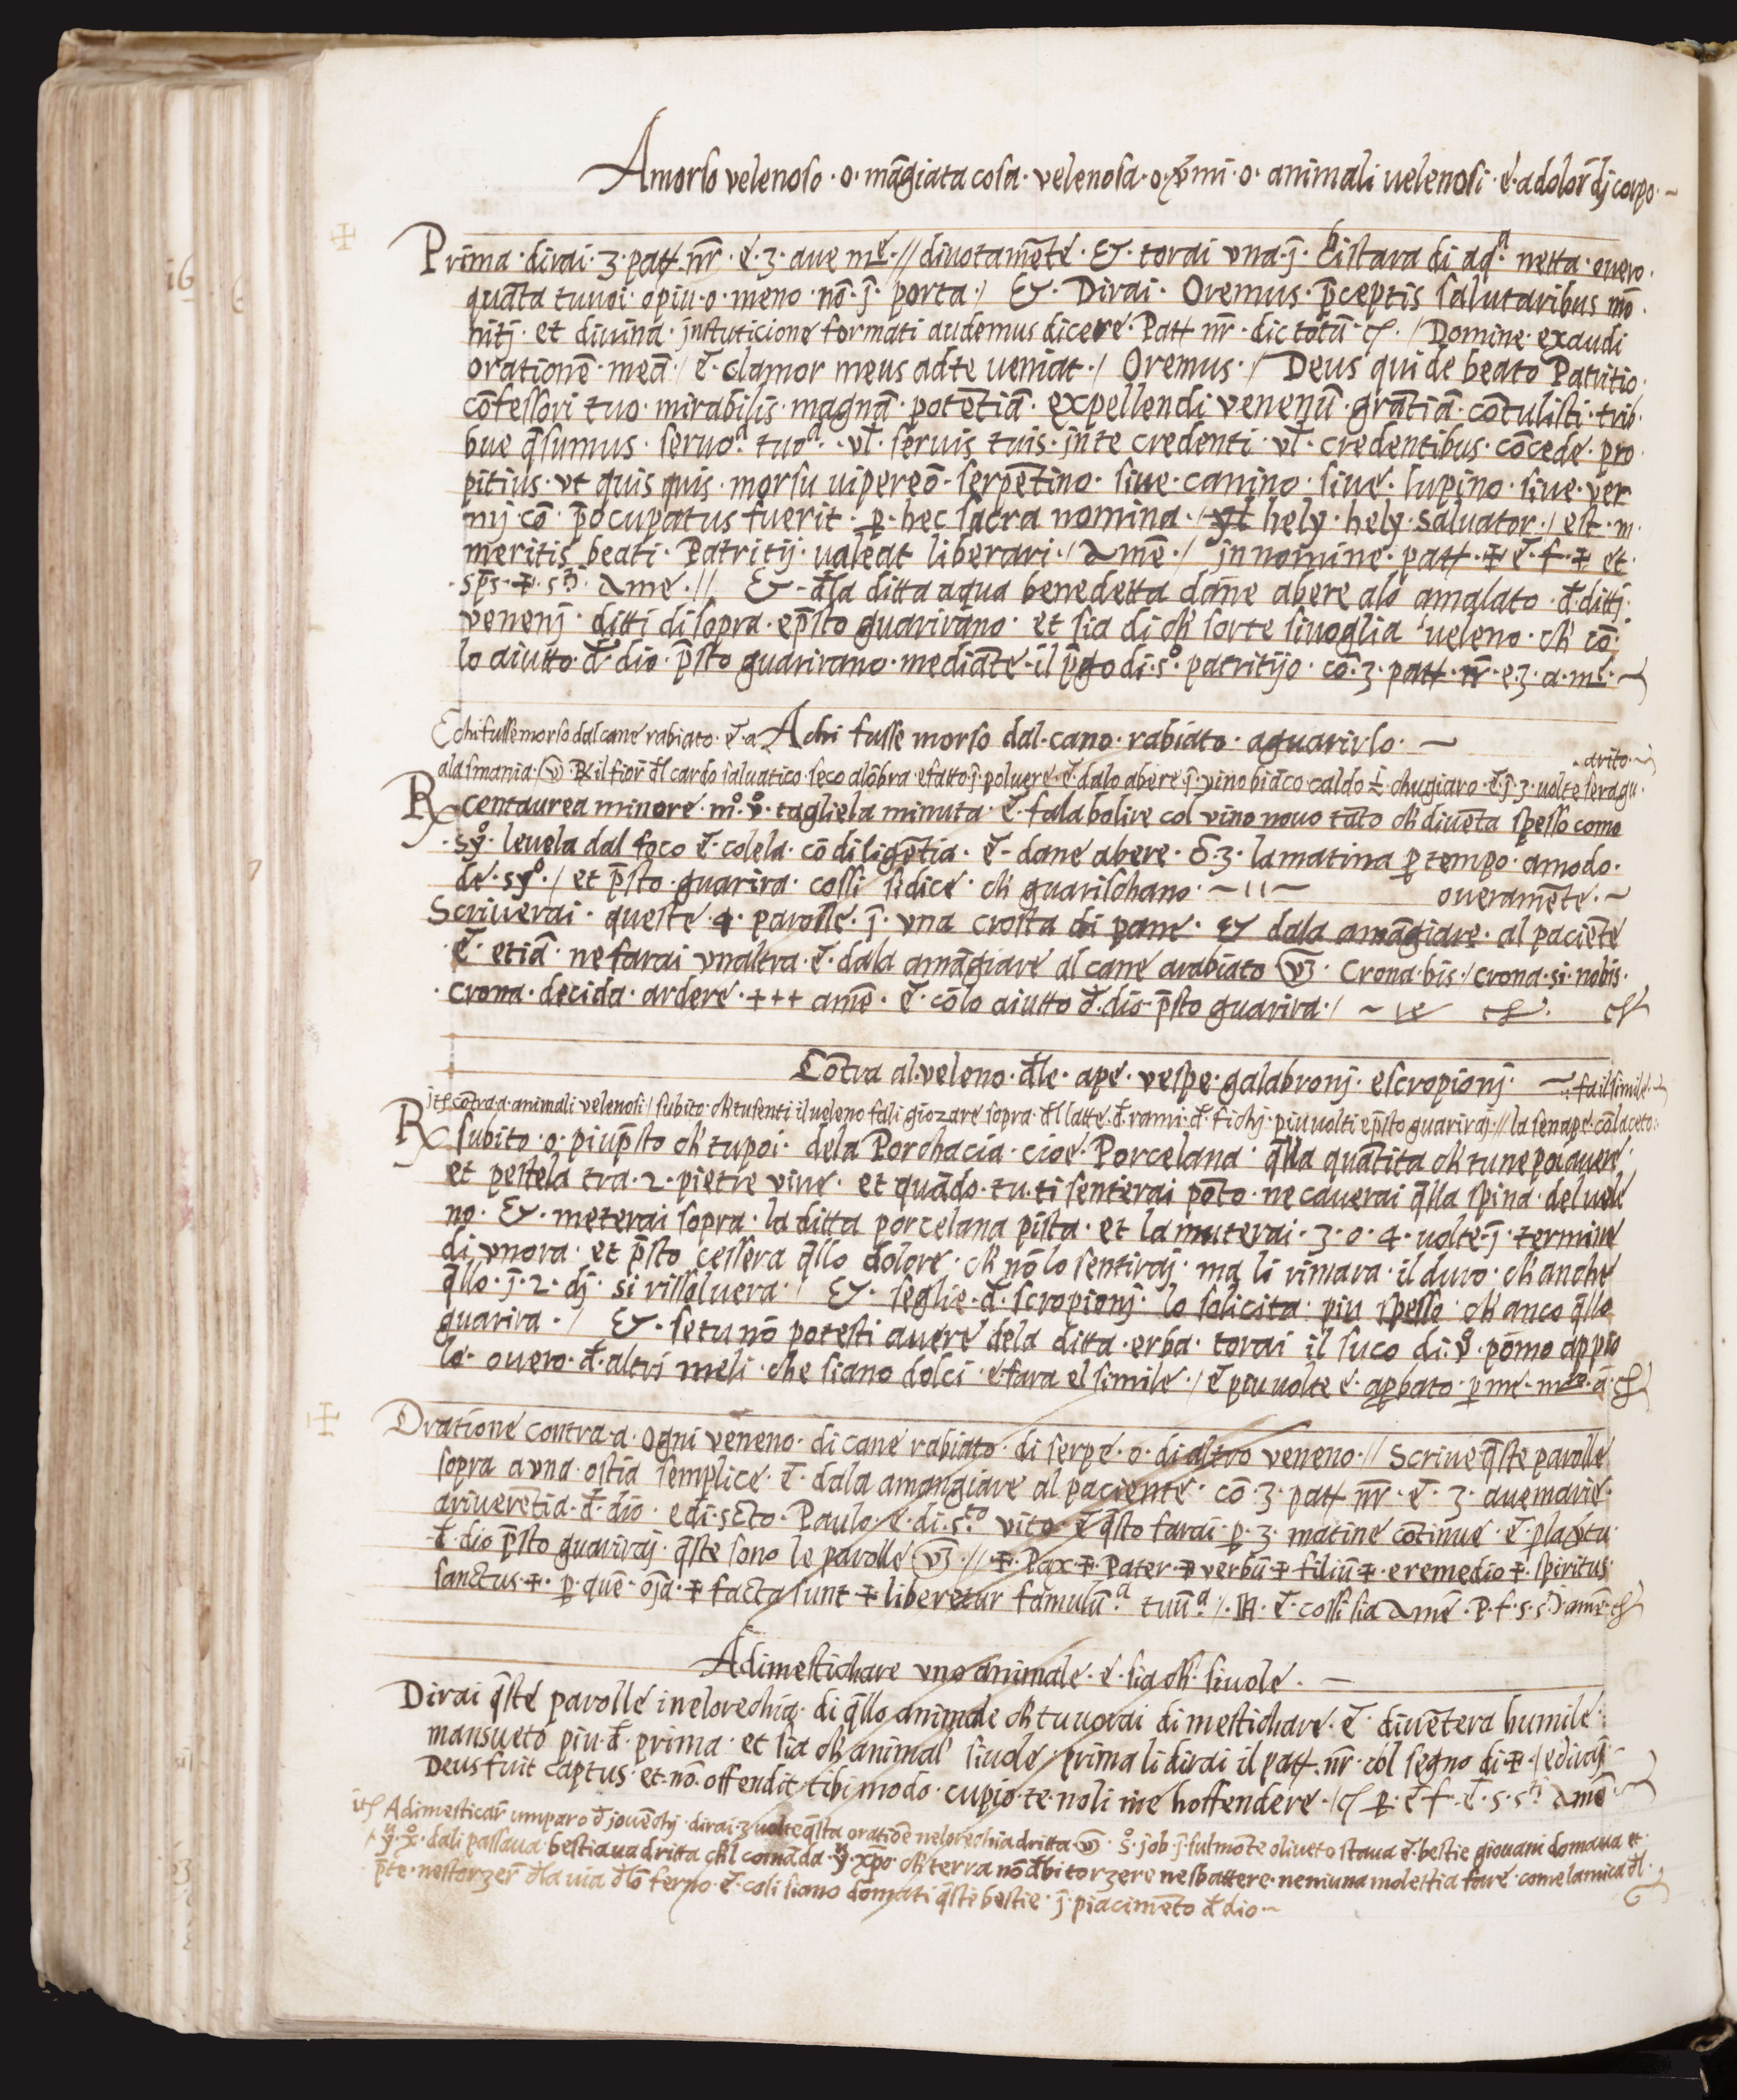 Amorso velenoso · o · māgiata cosa · velenosa · o · v̄mi · o · animali uelenosi · e · adolor̄ dj corpo ·~
Prima · dirai · 3 · patr̄ · nr̄ · e · 3 · aue me · // diuotamēte · & · torai vna · j̄ · bistara di aqa · netta · ouero ·
quāta tuuoi · opiu · o · meno · nō · j̄ · porta · / & · Dirai · Oremus · p̄ceptis salutaribus mō
nitj · et diuina · jnstuticione formati audemus dicere · Patr̄ nr̄ · dic totū · / Domine · exaudi
orationē · meā · / ē · clamor meus adte ueniat · / Oremus · / Deus qui de beato Patritio ·
cōfessori tuo · mirabilis · magnā · potētiā · expellendi venenū · gratiā · cōtulisti · trib
bue q̄sumus · seruoa · tuoa · vl̄ · seruis tuis · jnte credenti · vl̄ · credentibus · cōcede · pro
pitius · vt quis quis · morsu uipereō · serpētino · siue · canino · siue · lupino · siue · ver
mj · cō · p̄ocupatus fuerit · p̱ · hec sacra nomina · / hely · hely · saluator · / est · m
meritis beati · Patritij · ualeat liberari · / Amē · / jn nomine · patr̄ · ✠ ē · f · ✠ et ·
sp̄s · ✠ · sti · Ame · // & · d̄la ditta aqua benedetta dane abere alo amalato · d̄ · dittj ·
venenj · ditti disopra · ep̄sto guarirano · et sia di ch sorte siuoglia ueleno · ch cō
lo aiutto · d̄ · dio · p̄sto guarirano · mediāte · il p̄go di · so · patritijo · cō · 3 · patr̄ · nr̄ · e 3 · a · me ·
E chi fusse morso dal cane rabiato · ē · a Achi fusse morso dal · cano · rabiato · aguarirlo · ~
· arito ·~
ala smania · ℞ il fior d̄l cardo saluatico · seco alōbra e fatto · j̄ · poluere · ē · dalo abere · j̄ · vino biāco caldo chugiaro · ē · j̄ · 3 · uolte seragu ·
℞ centaurea minore · mo · v̊ · tagliela minuta · ē · fala bolire col vino nouo tāto ch diuēta spesso como
· syo · leuela dal foco ē · colela · cō diligētia · ē · dane abere · 3 · la matina p̱ tempo · amodo ·
de · syo · / et p̄sto · guarira · cossi si dice · ch guarischano · ~ıı~ oueramēte · ~
Scriuerai · queste · 4 · parolle · j̄ · vna crosta di pane · & dala amāgiare · al paciēte
· ē · etiā · ne farai vnaltra · ē · dala amāgiare al cane arabiato · Crona · bis · / crona · si · nobis ·
· crona · decida · ardere · +++ amē · ē · cōlo aiutto d̄ · dio · p̄sto guarira · /
Cōtra al · veleno · d̄le · ape · vespe · galabronj · escropionj · ~ · fa il simile ·~
cōtra a · animali velenosi / subito · ch tu senti il ueleno fali giozare sopra · d̄l latte · d̄ · rami · d̄ · fichj · piu uolti ep̄sto guariraj · // la senape · cōlaceto ·
℞ subito · o · piup̄sto ch tupoi · dela Porchacia · cioe · Porcelana · q̄lla quātita ch tune poi auere ·
et pestela tra · 2 · pietre viue · et quādo · tu · ti senterai pōto · ne cauerai q̄lla spina · del uele
no · & · meterai sopra · la ditta porcelana pista · et la muterai · 3 · o · 4 · uolte · j̄ · termine
di vnora · et p̄sto cessera q̄llo dolore · ch nō lo sentiraj · ma li rimara · il duro · ch anche
q̄llo · j̄ · 2 · dj · si rissoluera · / & · seglie · d̄ · scropionj · lo solicita · piu spesso · ch anco q̄llo
guarira · / & · se tu nō potesti auere dela ditta · erba · torai il suco di · v̊ · pomo appio
lo · ouero · d̄ · altrj meli · che siano dolci · e fara el simile · / ē piu uolte e · ap̱bato · p̱ me ·
Oratione contra · a · ogni veneno · di cane rabiato · di serpe · o · di altro veneno · // Scriue q̄ste parolle
sopra a vna · ostia semplice · ē · dala amangiare al paciente · cō · 3 · patr̄ nr̄ · ē · 3 · auemarie ·
ariuerētia · d̄ · dio · e di · scto · Paulo · e · di · sto vito · ē q̄sto farai · p̱ · 3 · matine cōtinue · ē · p̱la
· d̄ · dio p̄sto guariraj · q̄ste sono le parolle · // · ✠ · Pax · ✠ · Pater · ✠ verbū ✠ filiū ✠ · eremedio ✠ · spiritus
sanctus · ✠ · p̱ · quē · oīa · ✠ facta sunt ✠ liberetur famulūa tuūa / · ē · cossi sia Amē · P · f · s · s · amē ·
Adimestichare vno animale · e · sia ch · siuole · —
Dirai q̄ste parolle inelorechia · di q̄llo animale ch tu uorai dimestichare · ē · diuētera humile
mansueto piu · d̄ · prima · et sia ch animal siuole / prima li dirai il patr̄ · nr̄ · col segno di · ✠ · / ediraj
Deus fuit captus · et · nō · offendit · tibi modo · cupio · te · noli me hoffendere · / p̱ · ē f · ē · s · sti Amē
Adimesticar̄ umparo d̄ jouēchj · dirai · 3 uolte q̄sta oratiōe nelorechia dritta · so · job · j̄ · sulmōte oliueto staua ē · bestie giouani domaua et ·
· dali passaua · bestia ua dritta chl comāda · xp̄o · ch terra nō d̄bi torzere ne sbattere · ne niuna molestia fare · come lamica d̄l
p̄te · nestorzer̄ d̄la uia d̄lō fermo · ē · cosi siano domati q̄ste bestie · j̄ · piacimēto d̄ dio ·~